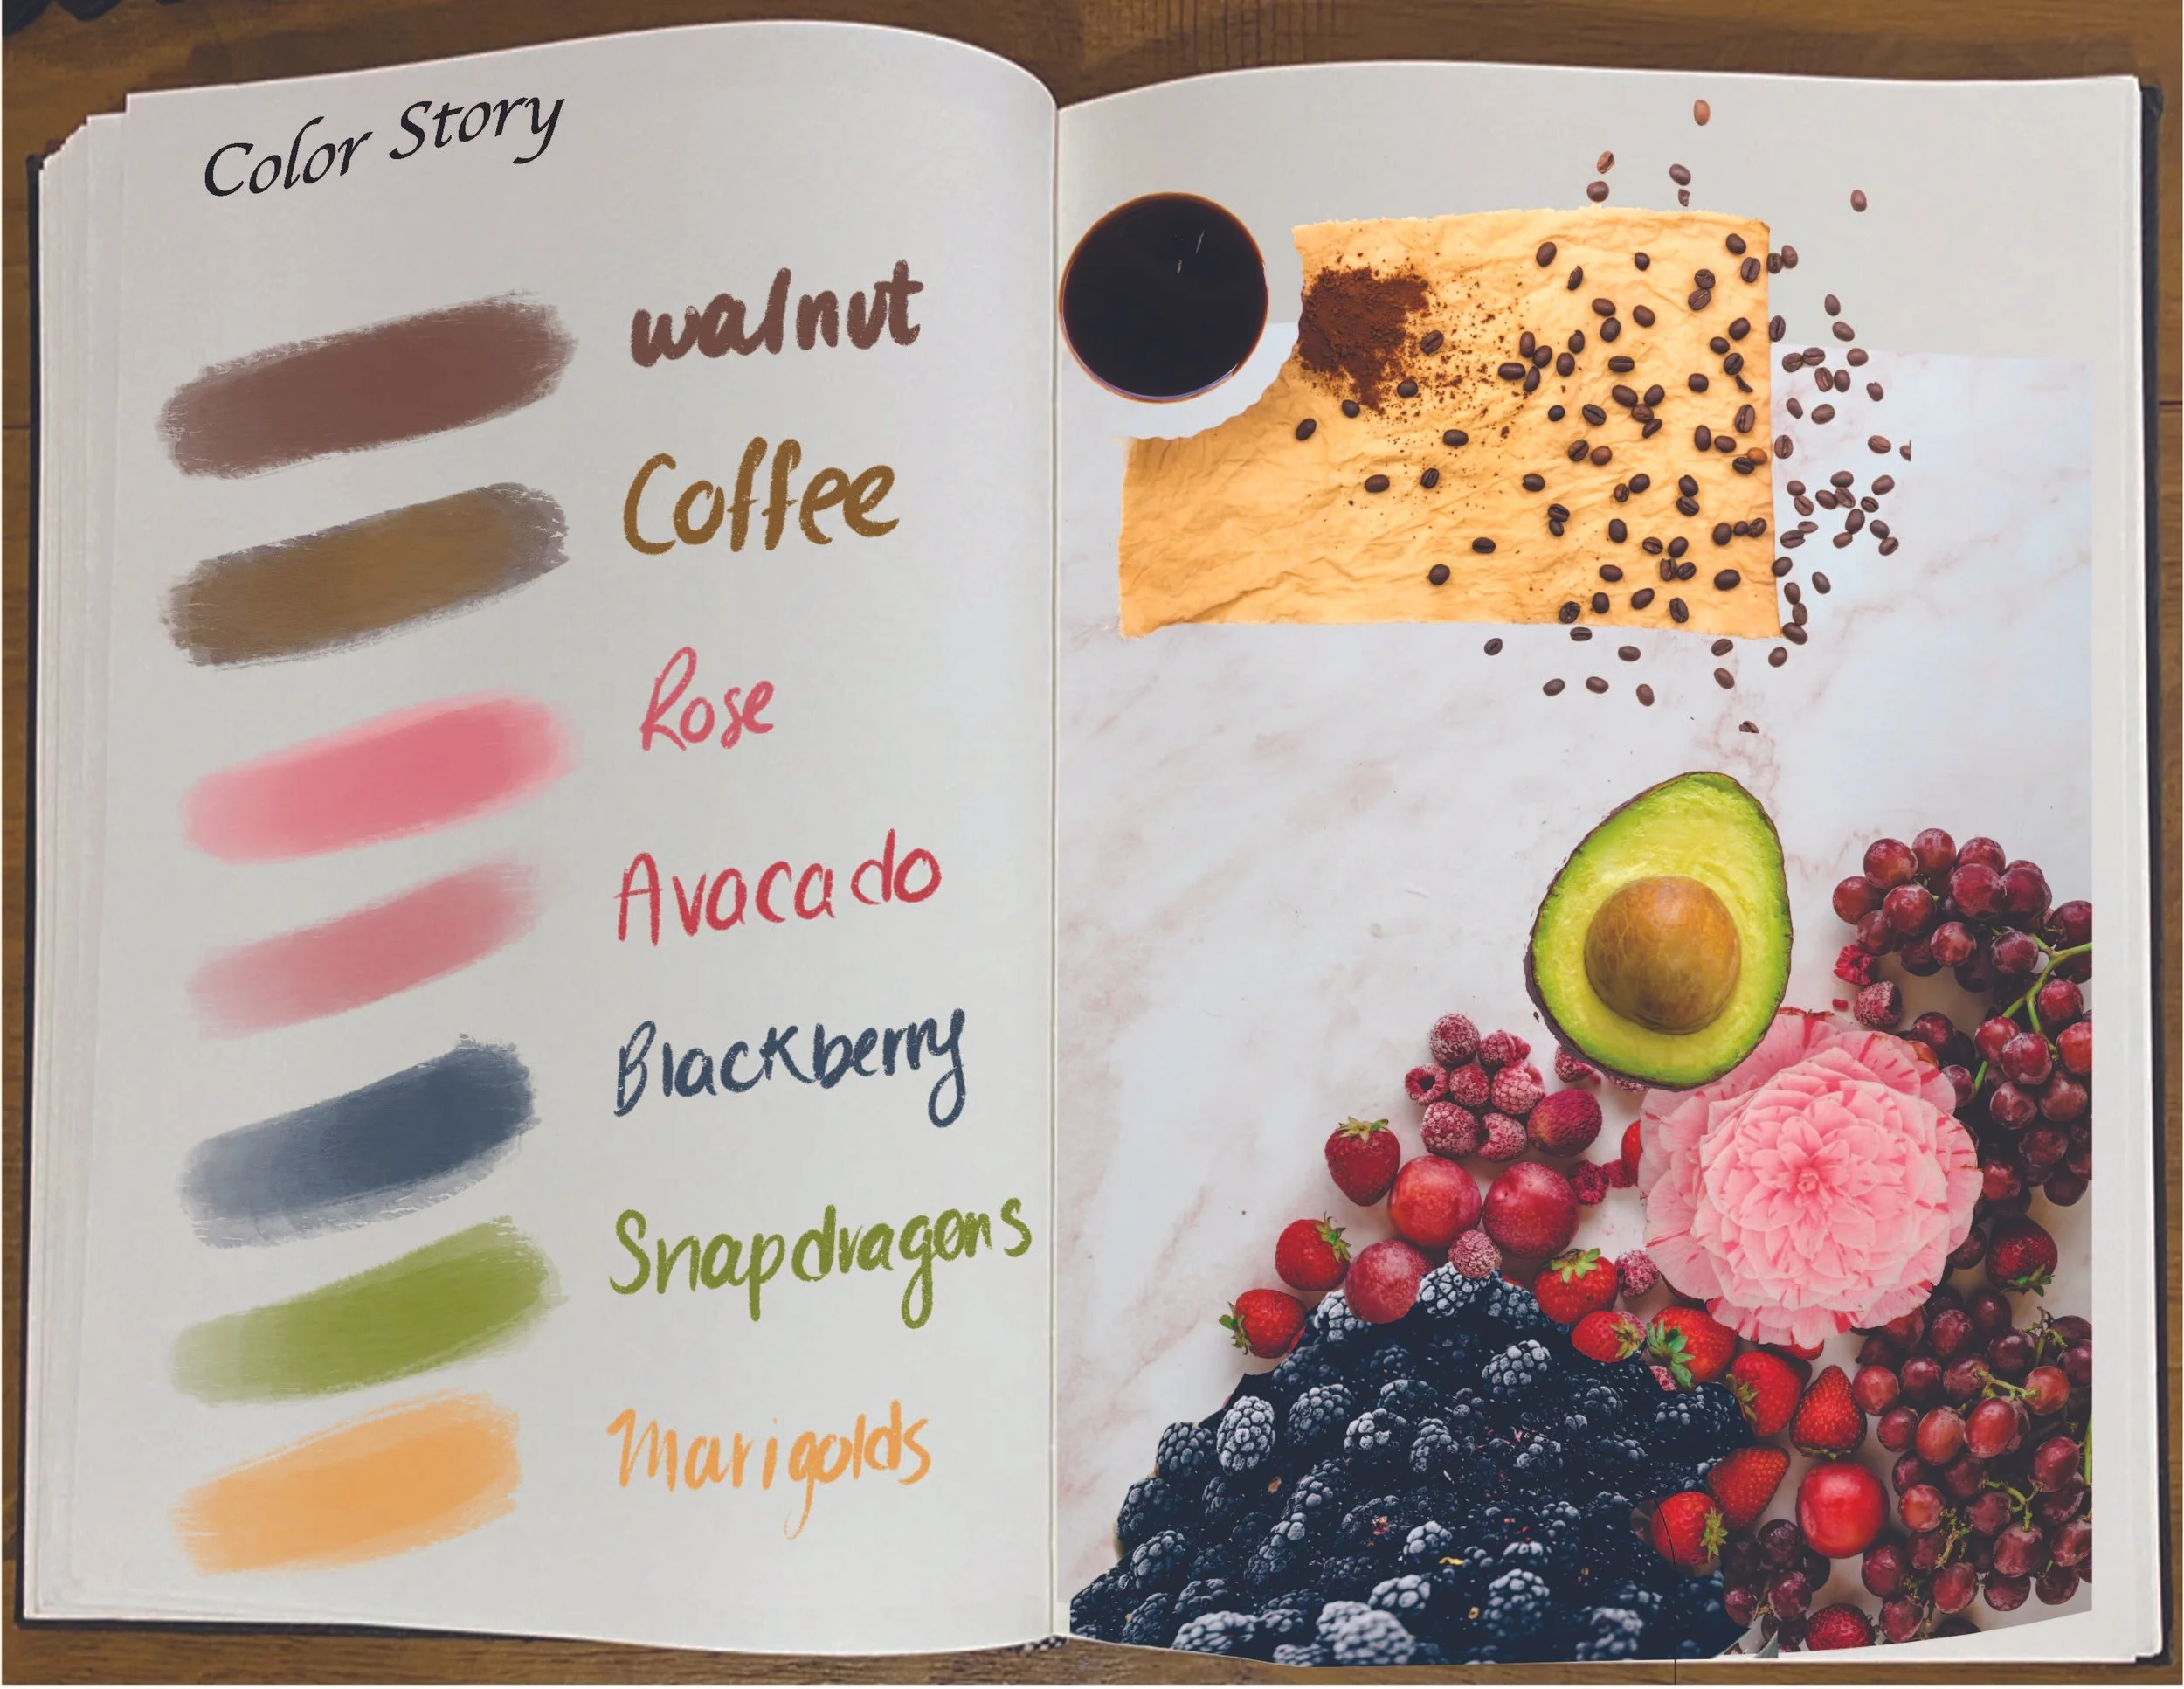 Color Story
walnut
Coffee
Rose
Avacado
Blackberry
Snapdragons
Marigolds